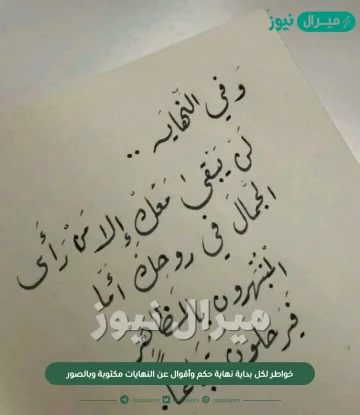 ميرال نيوز
وَفي النّهَايه ..
لَنْ يَبْقىٰ مَعَكْ إلا مَنْ رَأىٰ
الجَمَالَ في روحِكْ أمّا
المُنْبَهرون بالمَظَاهِر
فَيَرحَلونَ تِبَاعاً
ميرال نيوز
خواطر لكل بداية نهاية حكم وأقوال عن النهايات مكتوبة وبالصور